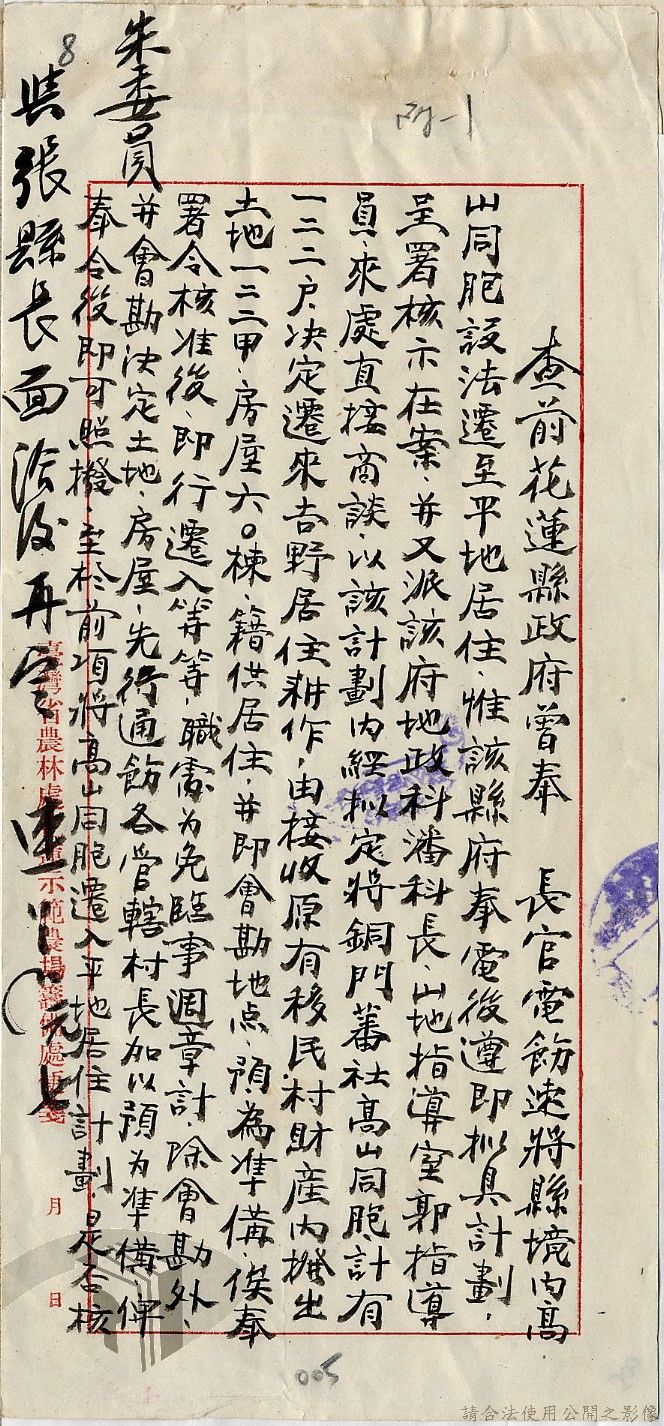 附-1
查前花蓮縣政府曾奉 長官電飭速將縣境內高
山同胞設法遷至平地居住、惟該縣府奉電後遵即擬具計劃、
呈署核示在案、并又派該府地政科潘科長、山地指導室郭指導
員、來處直接商談、以該計劃內經擬定將銅門蕃社高山同胞、計有
一二二戶、決定遷來吉野居住耕作、由接收原有移民村財產內撥出
土地一二二甲、房屋六〇棟、籍供居住、并即會勘地点、預為準備、俟奉
署令核准後、即行遷入等等、職處為免臨事週章計、除會勘外、
并會勘決定土地、房屋、先行通飭各管轄村長加以預為準備、俾
奉令後即可照撥、至於前項將高山同胞遷入平地居住計劃、是否核
朱委員
與張縣長面洽後再定
臺灣省農林處 蓮示範農場籌備處便箋
月 日
8
005
請合法使用公開之影像